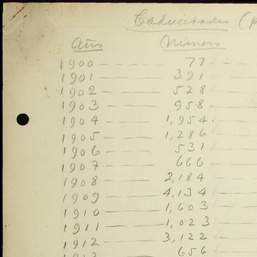 Caducidades (P
Año Número
1900 — 77
1901 — 391
1902 — 528
1903 — 958
1904 — 1,954
1905 — 1,286
1906 — 531
1907 — 666
1908 — 2,184
1909 — 4,134
1910 — 1,603
1911 — 1,023
1912 — 3,122
1913 — 656